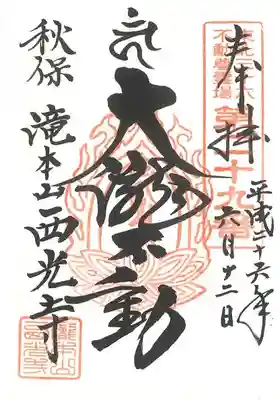 奉拝
東北三十六
不動尊霊場
第二十九番
平成二十六年
六月十二日
大瀧不動
秋保 滝本山西光寺
瀧本山
西光寺